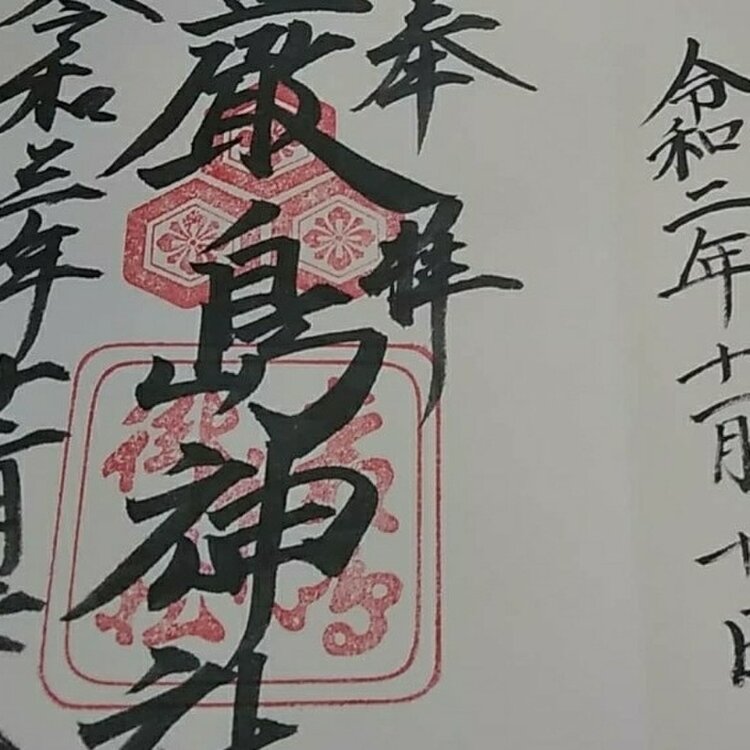 令和二年十一月十日
奉拝
厳島神社
令和三年十二月